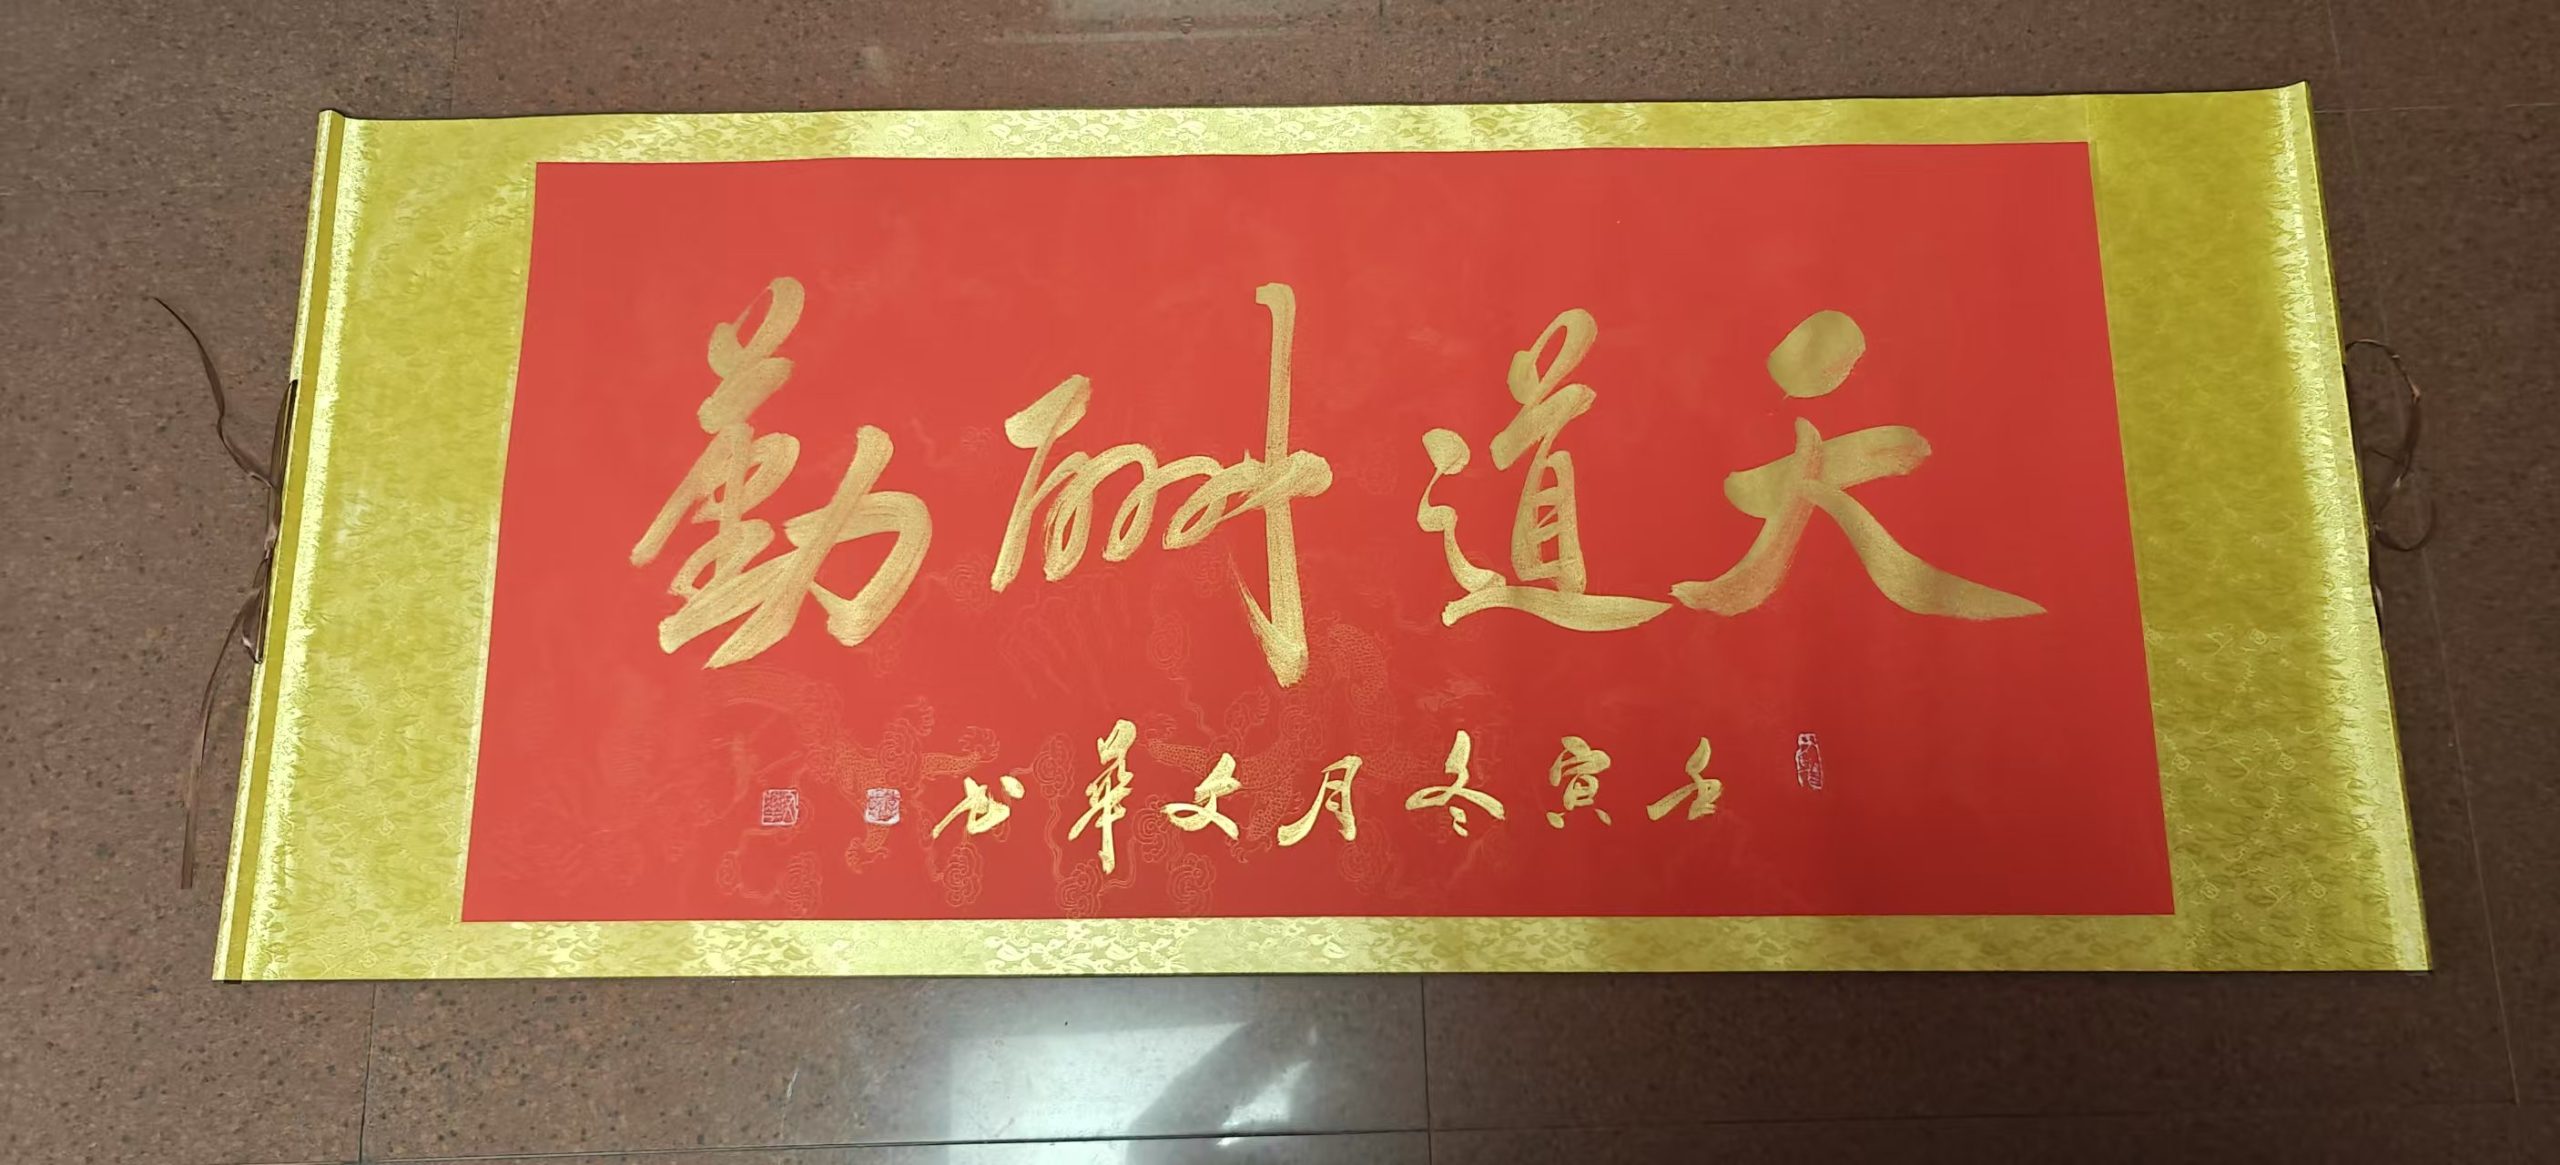 天道酬勤
壬寅冬月文華书